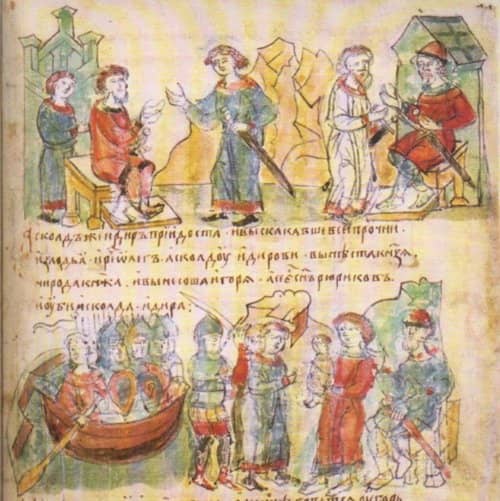 Асколдъ же и диръ придоста · и выскакавше вси прочии ·
из лодьи · и ре олегъ · асколдоу и дирови · вы нѣста кнѧзѧ ·
ни рода кнѧжа · и вынесоша игорѧ · а се е снъ рюриковъ ·
и оубиша асколда · и дира :